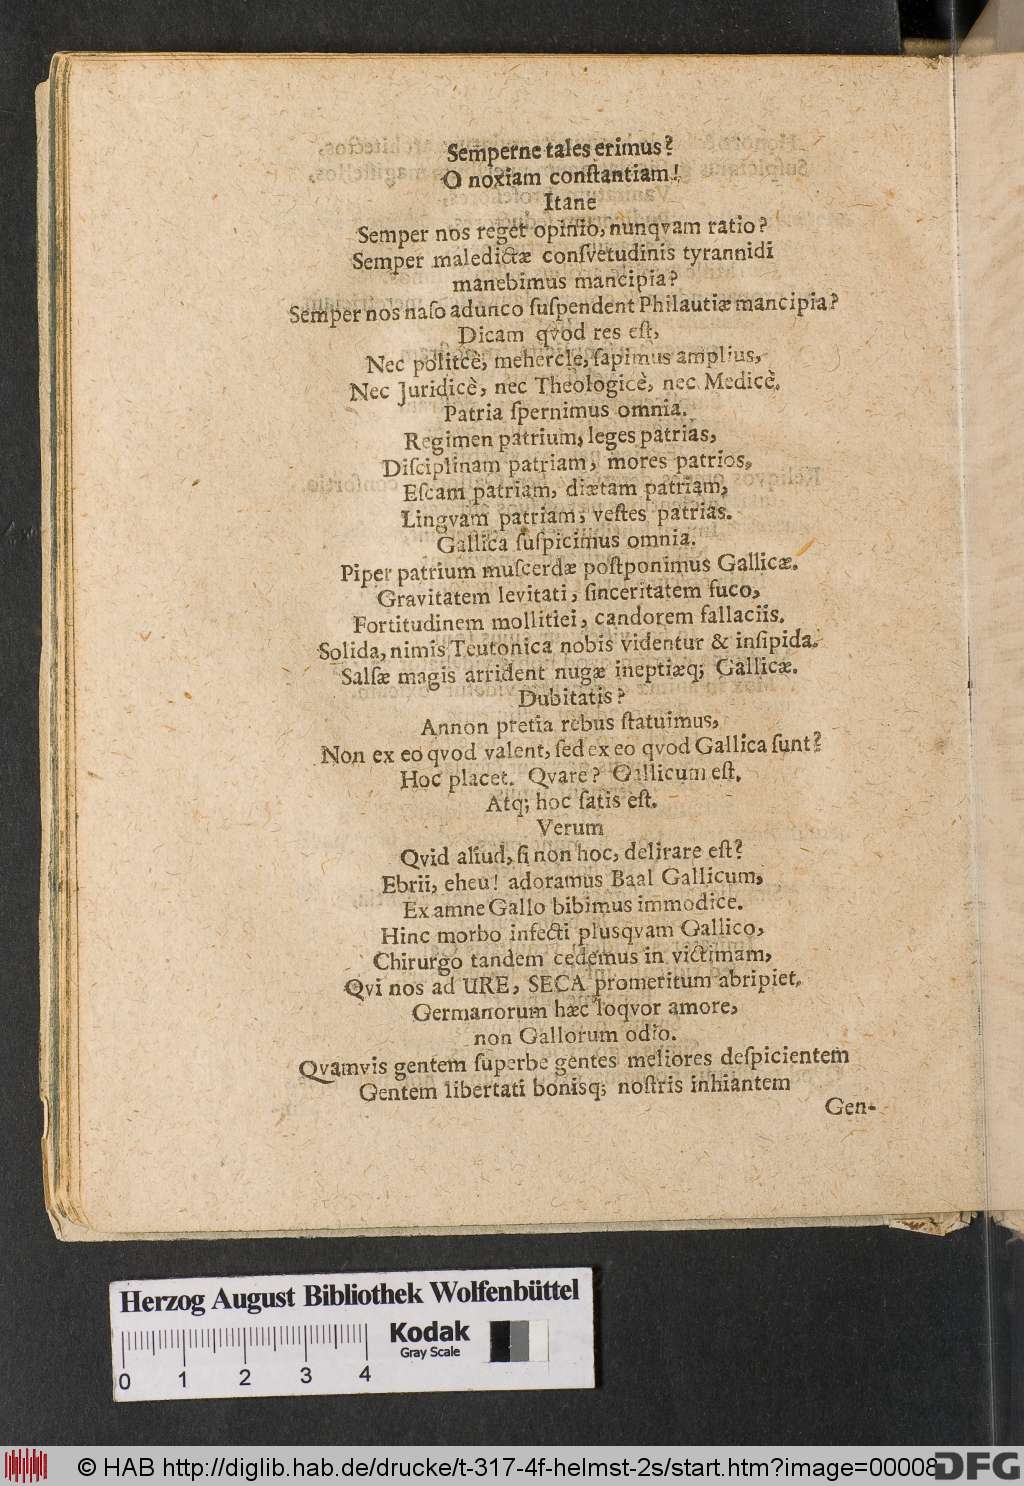 Semperne tales erimus?
O noxiam conſtantiam!
Itane
Semper nos reget opinio, nunqvam ratio?
Semper maledictæ conſvetudinis tyrannidi
manebimus mancipia?
Semper nos naſo adunco ſuſpendent Philautiæ mancipia?
Dicam qvod res eſt,
Nec politcè, mehercle, ſapimus amplius,
Nec Juridicè, nec Theologicè, nec Medicè.
Patria ſpernimus omnia.
Regimen patrium, leges patrias,
Diſciplinam patriam, mores patrios,
Eſcam patriam, diætam patriam,
Lingvam patriam, veſtes patrias.
Gallica ſuſpicimus omnia.
Piper patrium muſcerdæ poſtponimus Gallicæ.
Gravitatem levitati, ſinceritatem fuco,
Fortitudinem mollitiei, candorem fallaciis.
Solida, nimis Teutonica nobis videntur & inſipida.
Salſæ magis arrident nugæ ineptiæq; Gallicæ.
Dubitatis?
Annon pretia rebus ſtatuimus,
Non ex eo qvod valent, ſed ex eo qvod Gallica ſunt?
Hoc placet. Qvare? Gallicum eſt.
Atq; hoc ſatis eſt.
Verum
Qvid aliud, ſi non hoc, delirare eſt?
Ebrii, eheu! adoramus Baal Gallicum,
Ex amne Gallo bibimus immodice.
Hinc morbo infecti plusqvam Gallico,
Chirurgo tandem cedemus in victimam,
Qvi nos ad URE, SECA promeritum abripiet.
Germanorum hæc loqvor amore,
non Gallorum odio.
Qvamvis gentem ſuperbe gentes meliores deſpicientem
Gentem libertati bonisq; noſtris inhiantem
Gen-
Herzog August Bibliothek Wolfenbüttel
Kodak
Gray Scale
0 1 2 3 4
© HAB http://diglib.hab.de/drucke/t-317-4f-helmst-2s/start.htm?image=00008
DFG